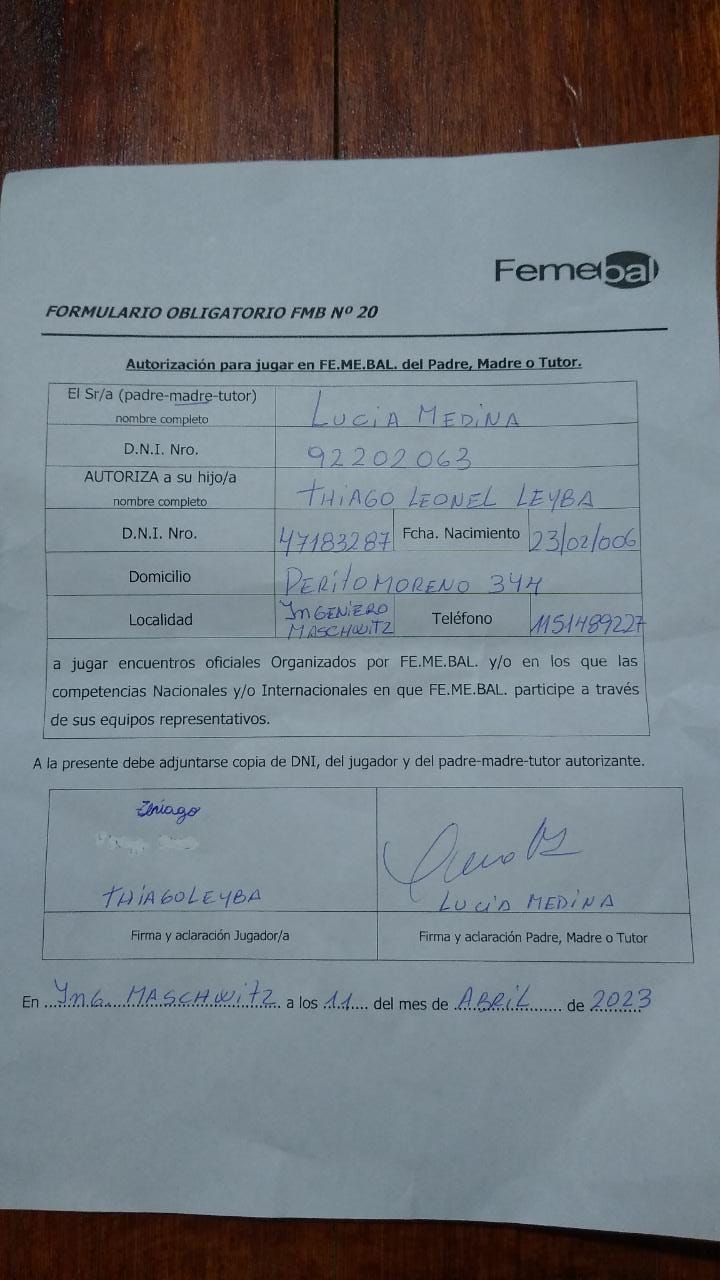 Femebal
FORMULARIO OBLIGATORIO FMB Nº 20
Autorización para jugar en FE.ME.BAL. del Padre, Madre o Tutor.
El Sr/a (padre-madre-tutor)
nombre completo
LUCIA MEDINA
D.N.I. Nro.
92202063
AUTORIZA a su hijo/a
nombre completo
THIAGO LEONEL LEYBA
D.N.I. Nro.
47183287
Fcha. Nacimiento
23/02/006
Domicilio
PERITO MORENO 344
Localidad
INGENIERO
MASCHWITZ
Teléfono
1151489227
a jugar encuentros oficiales Organizados por FE.ME.BAL. y/o en los que las
competencias Nacionales y/o Internacionales en que FE.ME.BAL. participe a través
de sus equipos representativos.
A la presente debe adjuntarse copia de DNI, del jugador y del padre-madre-tutor autorizante.
Thiago
THIAGO LEYBA
Firma y aclaración Jugador/a
LUCIA MEDINA
Firma y aclaración Padre, Madre o Tutor
En ...ING. MASCHWITZ. a los 11.... del mes de ABRIL....... de 2023